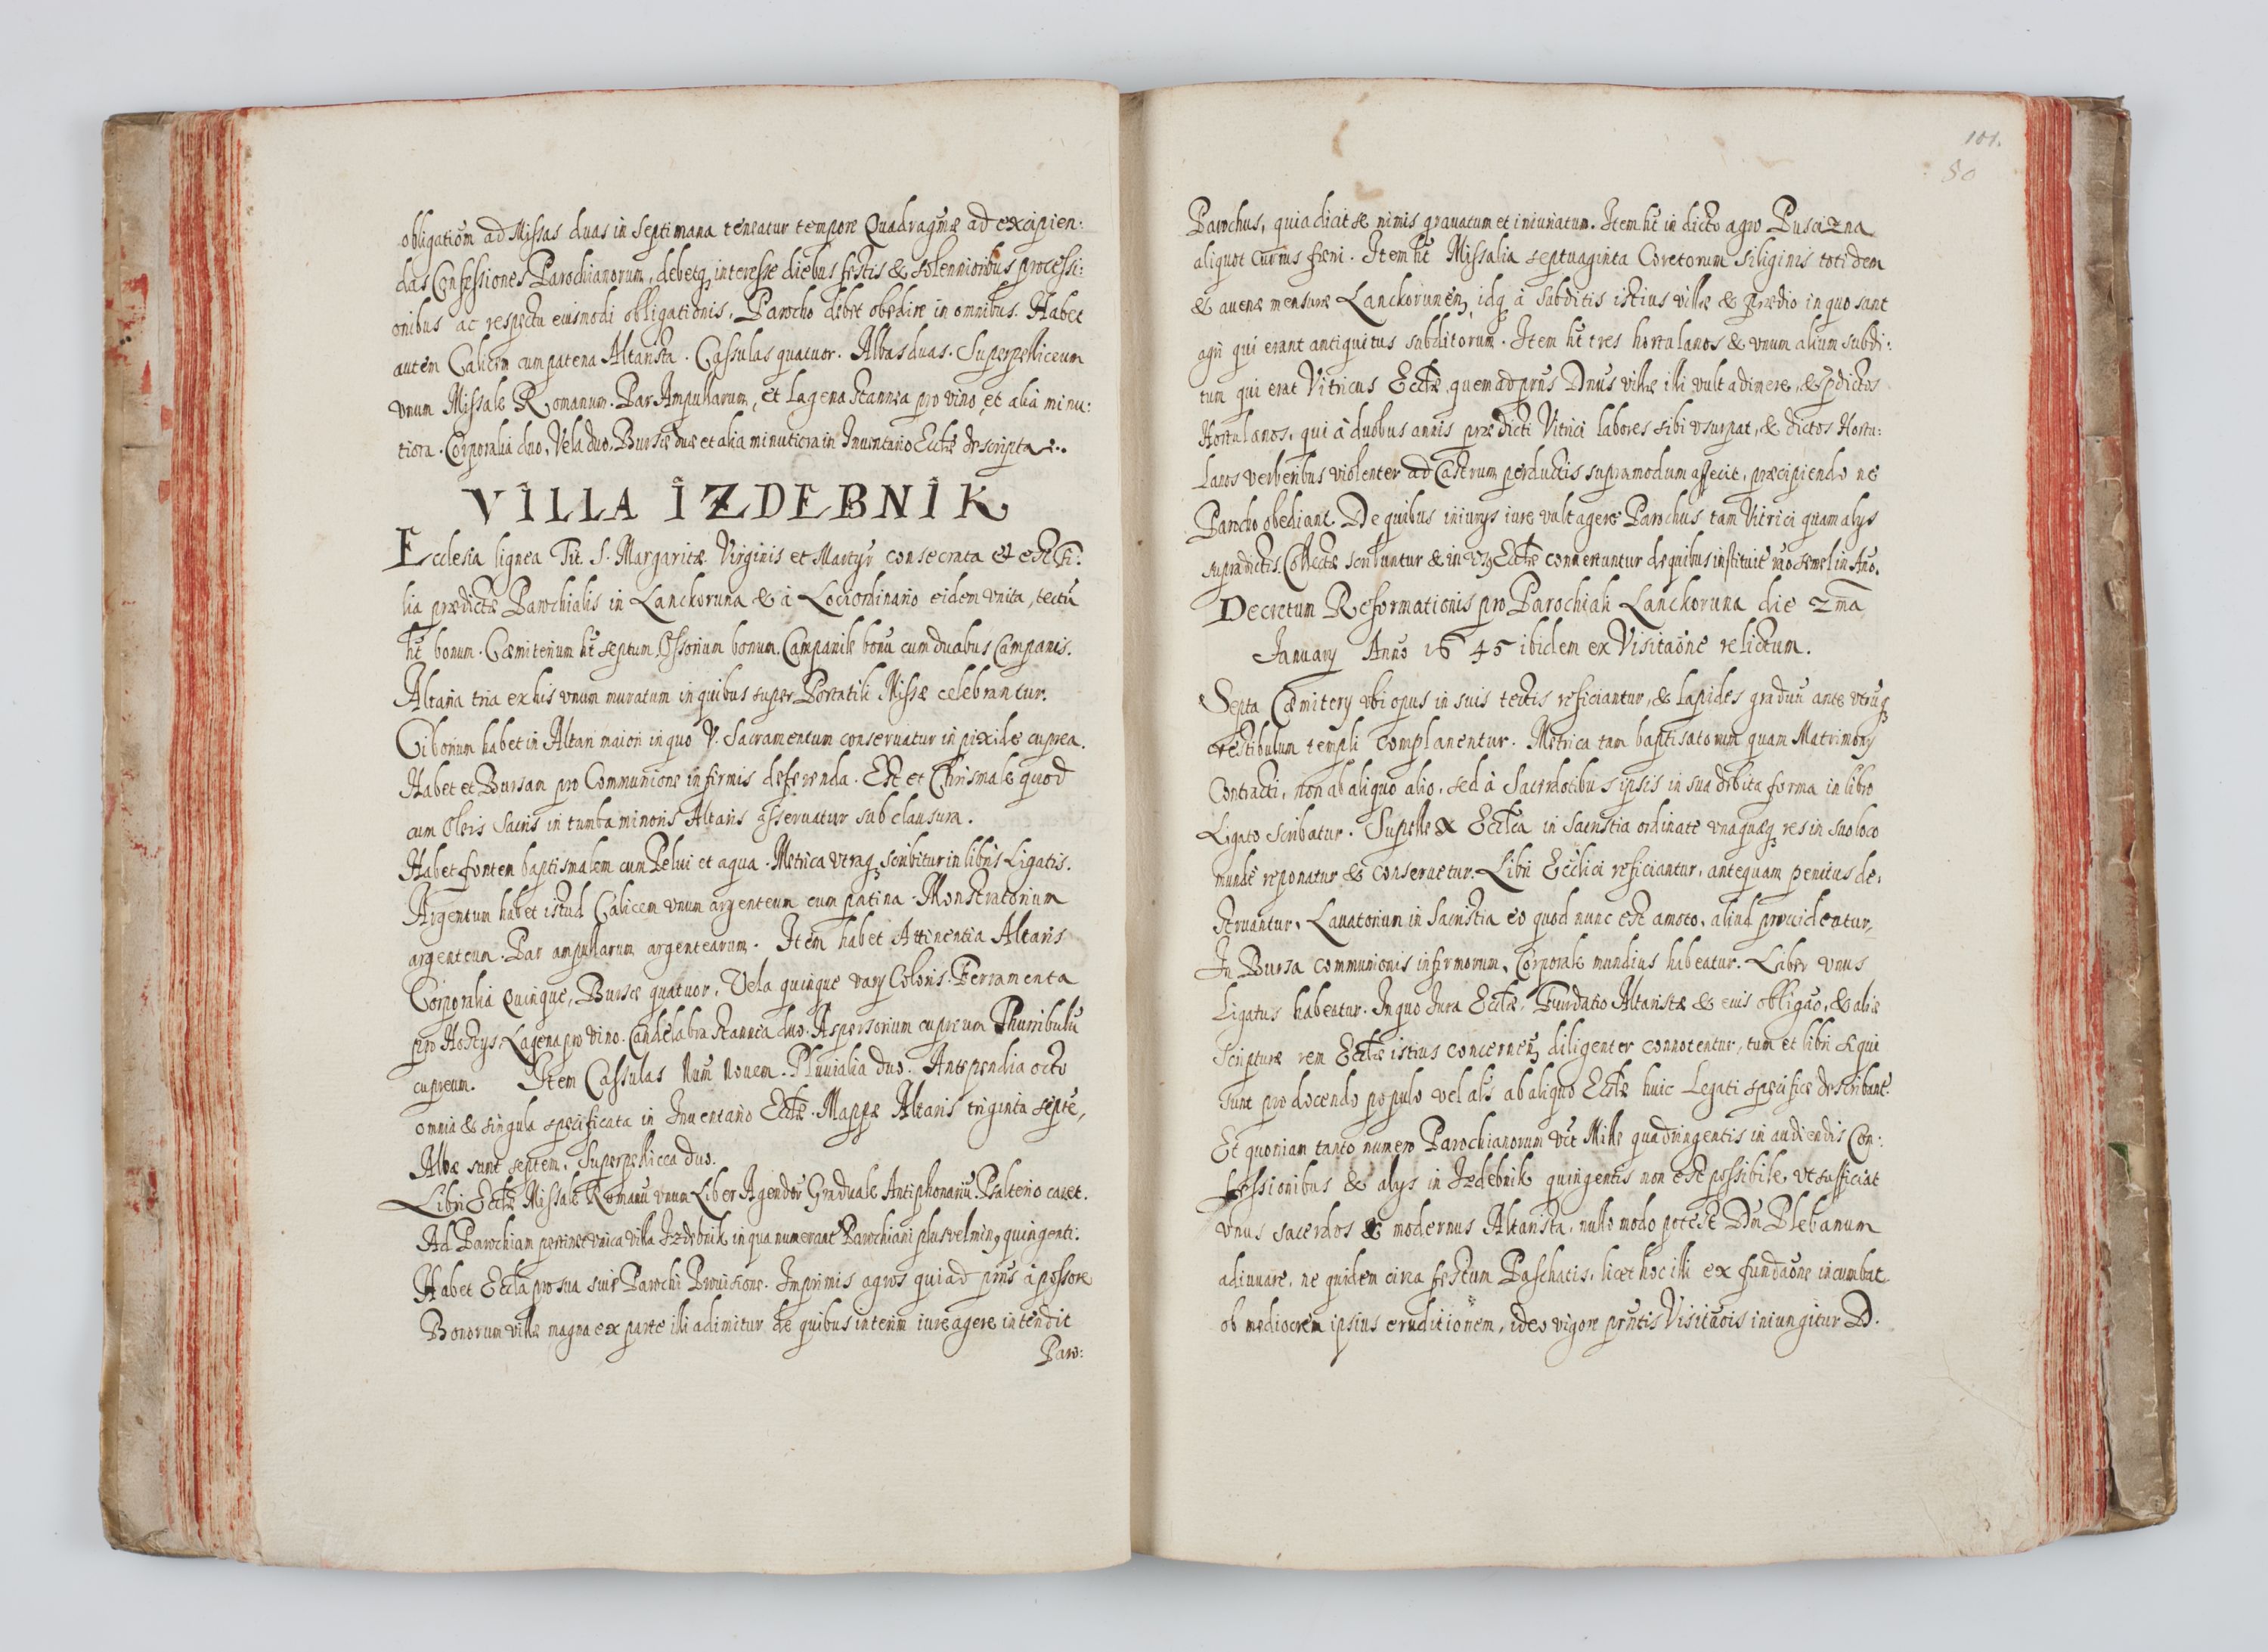 obligatiōm ad Missas duas in Septimana teneatur tempore Quadragmæ ad excipien:
das Confessiones Parochianorum, debetq₃ interesse diebus festis & solennioribus processi:
onibus ac respectu eiusmodi obligationis, Parocho debet obedire in omnibus. Habet
autem Calicem cum patena Altarista. Cassulas quatuor. Albas duas. Superpelliceum
vnum Missale Romanum. Par Ampullarum, et Lagena stannea pro vino, et alia minu:
tiora. Corporalia duo, Vela duo, Bursæ duæ et alia minutiora in Inuentario Ecclæ descripta
VILLA IZDEBNIK
Ecclesia lignea Tit. S. Margaritæ Virginis et Martyr consecrata et est Fi:
lia prædictæ Parochialis in Lanckoruna & à Loci ordinario eidem vnita, tectū
ht bonum. Cæmiterium ht septum, Ossorium bonum. Campanile bonū cum duabus Campanis.
Altaria tria ex his vnum muratum in quibus super Portatili Missæ celebrantur.
Ciborium habet in Altari maiori in quo V. Sacramentum conseruatur in pixide cuprea.
Habet et Bursam pro Communione infirmis deferenda. Est et Chrismale quod
cum Oleis Sacris in tumba minoris Altaris asseruatur sub clausura.
Habet fontem baptismalem cum Pelui et aqua. Metrica vtraq₃ scribitur in libris Ligatis.
Argentum habet istud Calicem vnum argenteum cum patina. Monstratorium
argenteum. Par ampullarum argentearum. Item habet Attinentia Altaris
Corporalia Quinque, Bursæ quatuor, Vela quinque varij Coloris. Ferramenta
pro Hostijs, Lagena pro vino. Candelabra stannea duo. Aspersorium cupreum Thuribulū
cupreum. Item Cassulas Num̄ Nouem. Pluuialia duo. Antependia octo
omnia & singula specificata in Inuentario Ecclæ. Mappæ Altaris triginta septē,
Albæ sunt septem, Superpellicea duo.
Libri Ecclæ Missale Romanū vnum Liber Agendor Graduale Antiphonariū. Psalterio caret.
Ad Parochiam pertinet vnica villa Izdebnik in qua numerant Parochiani plus vel min₉ quingenti.
Habet Eccla pro sua suiq Parochi Prouisione. Imprimis agros qui ad prns à possore
Bonorum villæ magna ex parte illi adimitur de quibus interim iure agere intendit
Paro:
101.
80
Parochus, quia dicit se nimis grauatum et iniuriatum. Item ht in dicto agro Puscizna
aliquot currus fæni. Item ht Missalia septuaginta Coretorum Siliginis totidem
& auenæ mensuræ Lanckorunen₉ idq₃ à subditis istius villæ & prædio in quo sunt
agri qui erant antiquitus subditorum. Item ht tres hortulanos & vnum alium subdi:
tum qui erat Vitricus Ecclæ, quem ad prns Dnus villæ illi vult adimere, & pdictos
Hortulanos, qui à duobus annis prædicti Vitrici labores sibi vsurpat, & dictos Hortu:
lanos verberibus violenter ad Castrum perductis supra modum affecit, præcipiendo ne
Parocho obediant. De quibus iniurijs iure vult agere Parochus tam Vitrici quam alijs
supradictis. Collectæ scribuntur & in vsq Ecclæ conuertuntur de quibus instituit rāo semel in Ano.
Decretum Reformationis pro Parochiali Lanckoruna die 2ma
Januarij Anno 1645 ibidem ex Visitaōne relictum.
Septa Cæmiterij vbi opus in suis tectis reficiantur, & lapides graduū ante vtruq₃
vestibulum templi complanentur. Metrica tam baptisatorum quam Matrimonij
Contracti, non ab aliquo alio, sed à Sacerdotibus ipsis in sua debita forma in libro
Ligato Scribatur. Supellex Ecclca in Sacristia ordinatè vnaquæq₃ res in suo loco
mundè reponatur & conseruetur. Libri Ecclici reficiantur, antequam penitus de:
struantur, Lauatorium in Sacristia eo quod nunc est amoto, aliud prouideatur,
In Bursa communionis infirmorum, Corporale mundius habeatur. Liber vnus
Ligatus habeatur. In quo Jura Ecclæ, Fundatio Altaristæ & eius obligāo, & aliæ
Scripturæ rem Ecclæ istius concernen₉ diligenter connotentur, tum et libri si qui
sunt pro docendo populo vel als ab aliquo Ecclæ huic Legati specificè describant.
Et quoniam tanto numero Parochianorum vtt Mille quadringentis in audiendis Con:
fessionibus & alijs in Izdebnik quingentis non est possibile, vt sufficiat
vnus sacerdos & modernus Altarista, nullo modo potest Dn Plebanum
adiuuare, ne quidem circa festum Paschatis, licet hoc illi ex fundaōne incumbat
ob mediocrem ipsius eruditionem, ideo vigore prntis Visitaōis iniungitur D.